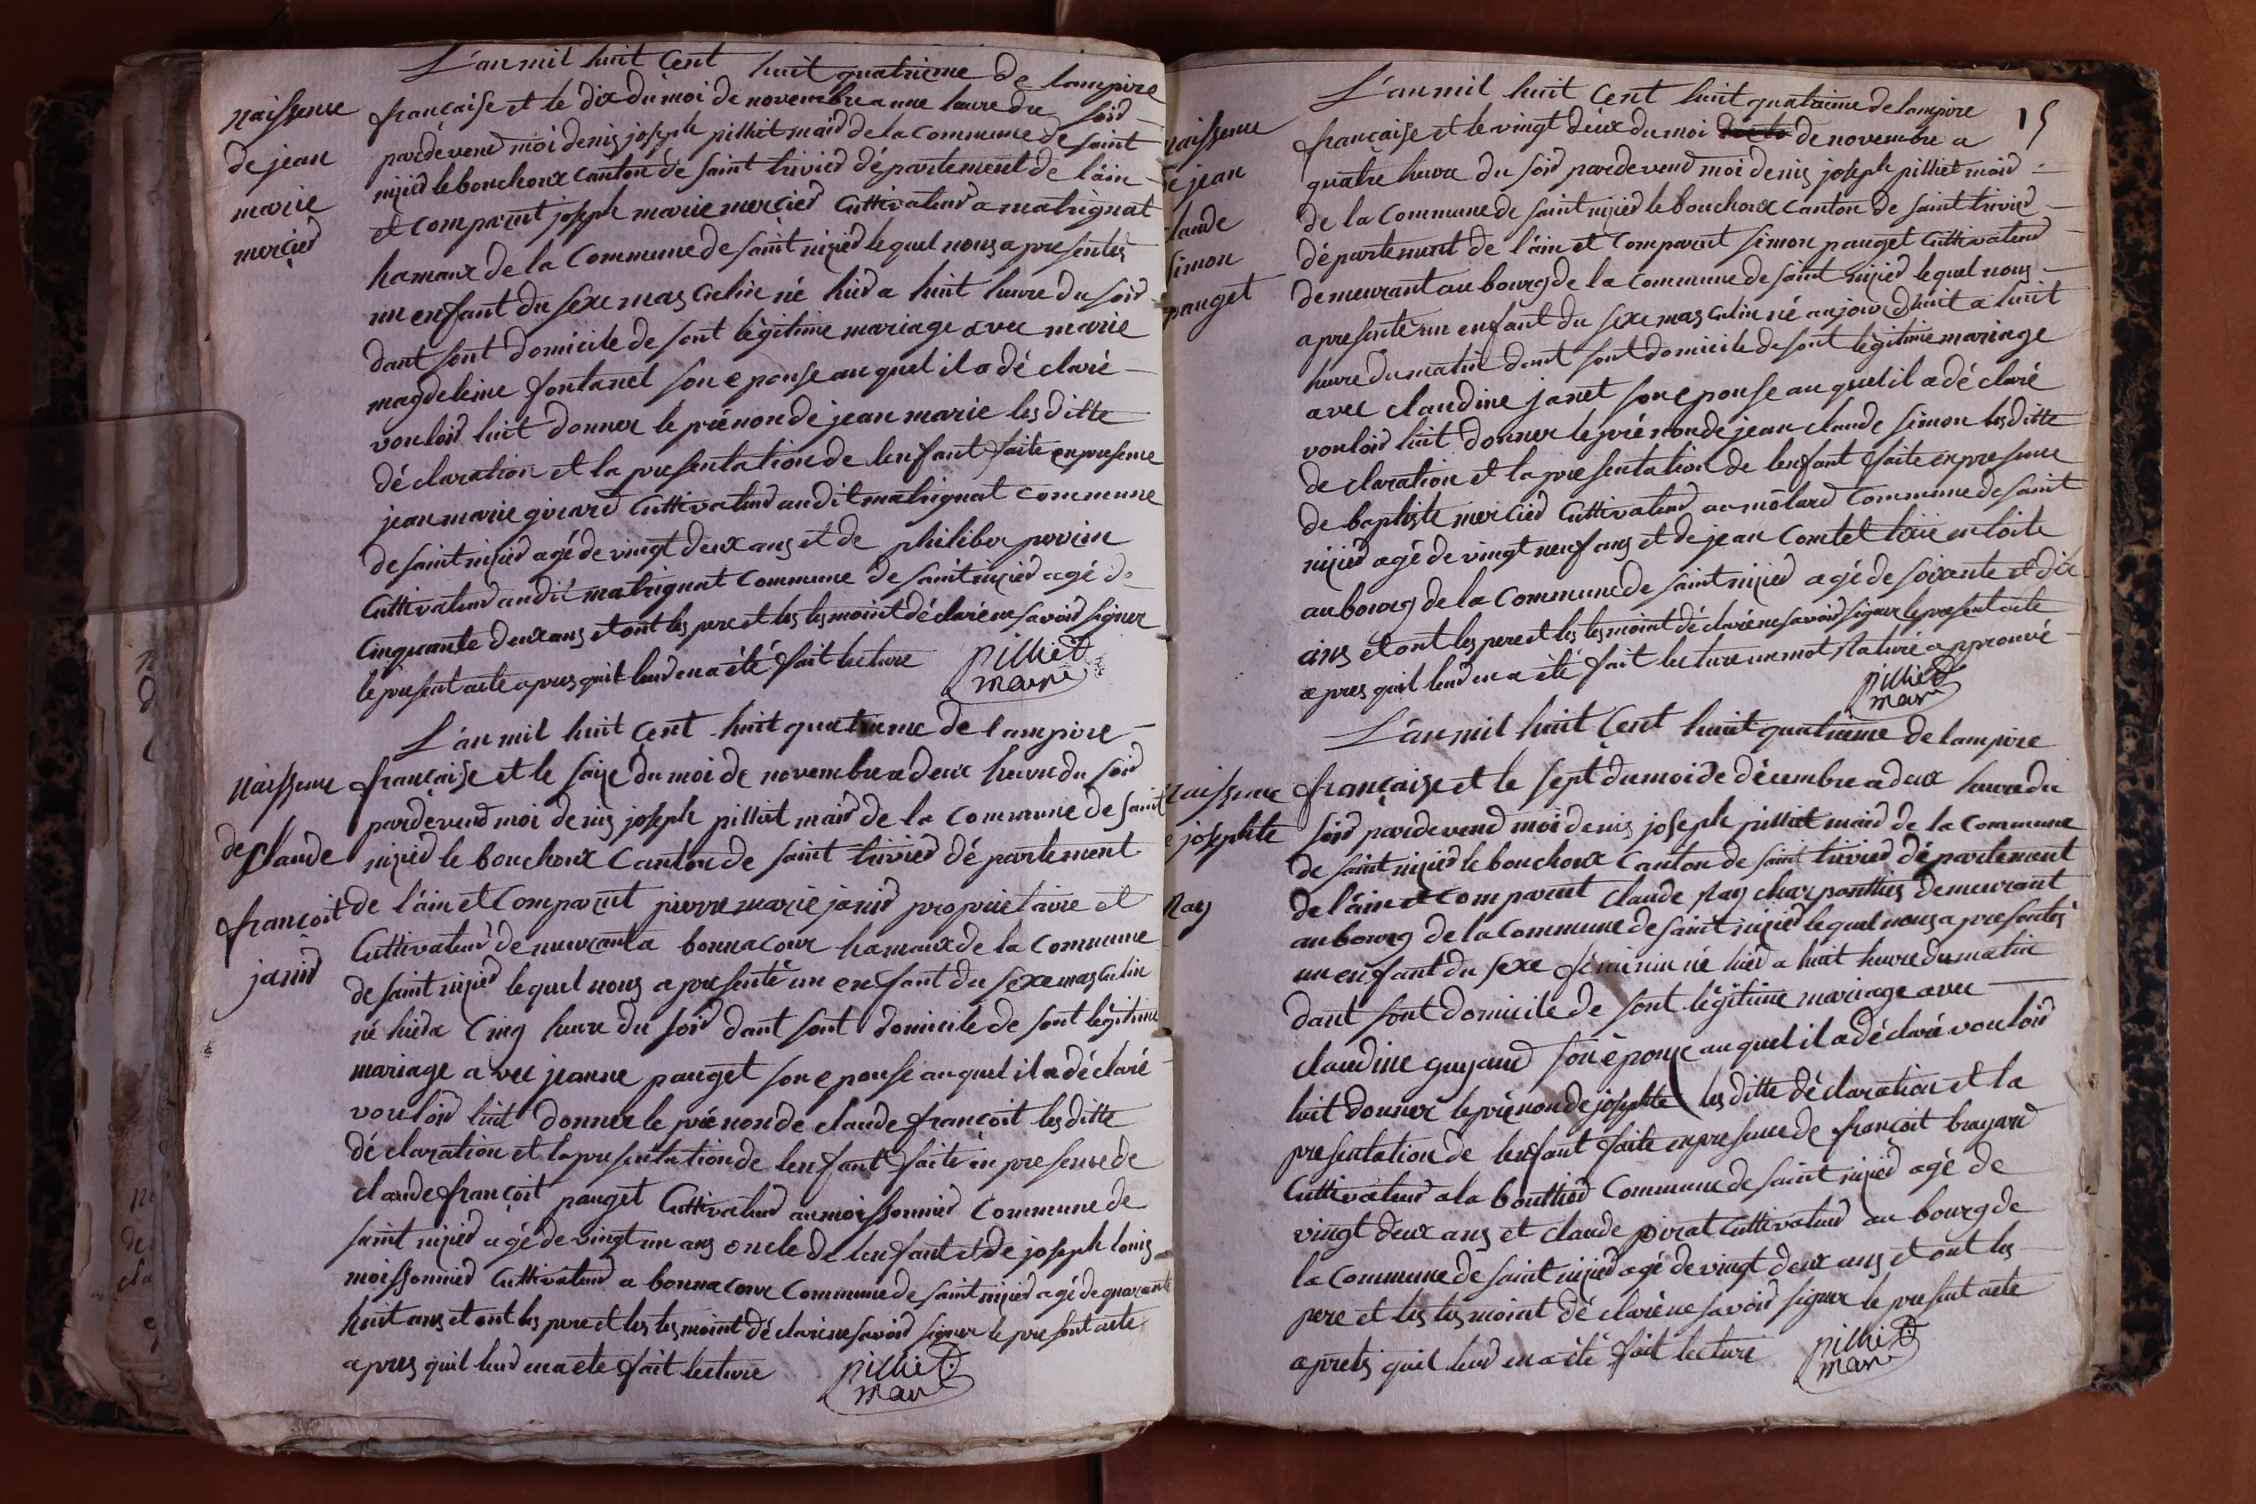 naissence
de jean
marie
mercier
L'an mil huit cent huit quatrieme de lampire
française et le dix du moi de novembre a une heure du soir
pardevend moi denis joseph pilliet mair de la commune de saint
nizier le bouchoux canton de saint trivier département de l'ain
et comparut joseph marie mercier cultivateur a malrignat
hamaux de la commune de saint nizier lequel nous a presentes
un enfant du sexe masculin né hier a huit heure du soir
dant sont domicile de sont légitime mariage avec marie
magdeleine fontanel son epouse auquel il a déclaré
vouloir luit donner le prénon de jean marie les ditte
déclaration et la presentation de lenfant faite en presence
jean marie gviard cultivateur audit malrignat commune
de saint nizier agé de vingt deux ans et de philiber perrin
cultivateur audit malrignat commune de saint nizier agé de
cinquante deux ans et ont les pere et les tesmoint déclaré ne savoir signer
le present acte apres quit leur en a été fait lecture
pilliet
maire
naissence
de claude
françoit
janid
L'an mil huit cent huit quatrieme de lampire
française et le saise du moi de novembre a deux heure du soir
pardevend moi denis joseph pilliet mair de la commune de saint
nizier le bouchoux canton de saint trivier département
de l'ain et comparut pierre marie janid propriétaire et
cultivateur demeurant a bonnacour hamaux de la commune
de saint nizier lequel nous a presenté un enfant du sexe masculin
né hier a cinq heure du soir dant sont domicile de sont légitime
mariage avec jeanne pauget son epouse auquel il a déclaré
vouloir luit donner le prénon de claude françoit les ditte
déclaration et la presentation de lenfant faite en presence de
claude françoit pauget cultivateur au moissonnier commune de
saint nizier agé de vingt un ans oncle de lenfant et de joseph louis
moissonnier cultivateur a bonnacour commune de saint nizier agé de quarante
huit ans et ont les pere et les tesmoint déclaré ne savoir signer le present acte
apres quil leur en a ete fait lecture
pilliet
maire
15
naissence
de jean
claude
simon
pauget
L'an mil huit cent huit quatrieme de lampire
française et le vingt deux du moi de novembre a
quatre heure du soir pardevend moi denis joseph pilliet mair
de la commune de saint nizier le bouchoux canton de saint trivier
département de l'ain et comparut simon pauget cultivateur
demeurant au bourg de la commune de saint nizier lequel nous
a presenté un enfant du sexe masculin né aujourdhuit a huit
heure du matin dant sont domicile de sont légitime mariage
avec claudine janet son epouse auquel il a déclaré
vouloir luit donner le prénon de jean claude simon les ditte
declaration et la presentation de lenfant faite en presence
de baptiste mercier cultivateur au molard commune de saint
nizier agé de vingt neuf ans et de jean comtet
au bourg de la commune de saint nizier agé de soixante et dix
ans et ont les pere et les tesmoint déclaré ne savoir signer le present acte
apres quil leur en a été fait lecture un mot raturé approuvé
pilliet
maire
naissence
de josephte
Ray
L'an mil huit cent huit quatrieme de lampire
française et le sept du moi de décembre a deux heure du
soir pardevend moi denis joseph pilliet mair de la commune
de saint nizier le bouchoux canton de saint trivier département
de l'ain et comparut claude Ray charpanttier demeurant
au bourg de la commune de saint nizier lequel nous a presentés
un enfant du sexe féminin né hier a huit heure du matin
dant sont domicile de sont légitime mariage avec
claudine guyand son épouse auquel il a déclaré vouloir
luit donner le prénon de josephte les ditte déclaration et la
presentation de lenfant faite en presence de françoit brayard
cultivateur a la bouttier commune de saint nizier agé de
vingt deux ans et claude pirat cultivateur au bourg de
la commune de saint nizier agé de vingt deux ans et ont les
pere et les tesmoint déclaré ne savoir signer le present acte
aprets quil leur en a été fait lecture
pilliet
maire